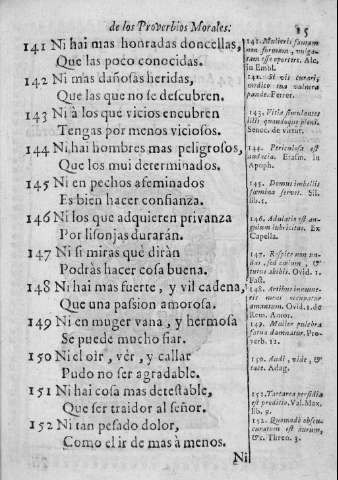 de los Proverbios Morales.
15
141 Ni hai mas honradas doncellas,
Que las poco conocidas.
142 Ni mas dañosas heridas,
Que las que no se descubren.
143 Ni à los que vicios encubren
Tengas por menos viciosos.
144 Ni hai hombres mas peligrosos,
Que los mui determinados.
145 Ni en pechos afeminados
Es bien hacer confianza.
146 Ni los que adquieren privanza
Por lisonjas duraràn.
147 Ni si miras què diràn
Podràs hacer cosa buena.
148 Ni hai mas fuerte, y vil cadena,
Que una passion amorosa.
149 Ni en muger vana, y hermosa
Se puede mucho fiar.
150 Ni el oir, vèr, y callar
Pudo no ser agradable.
151 Ni hai cosa mas detestable,
Que ser traidor al señor.
152 Ni tan pesado dolor,
Como el ir de mas à menos.
Ni
141. Mulieris famam
non formam, vulga-
tam esse oportere. Alc.
in Embl.
142. Si vis curari,
medico tua vulnera
pande. Ferret.
143. Vitia simulantes
illis quandoque pleni.
Senec. de virtut.
144. Periculosa est
audacia. Erasm. in
Apoph.
145. Domus imbellis
fœmina servet. Sil.
lib. 1.
146. Adulatio est an-
guium lubricitas. Ex
Capella.
147. Respice non un-
das, sed cœlum, &
tutus abibis. Ovid. 1.
Fast.
148. Artibus innume-
ris mens occupatur
amantum. Ovid. 1. de
Rem. Amor.
149. Mulier pulchra
fatua damnatur. Pro-
verb. 12.
150. Audi, vide, &
tace. Adag.
151. Tartarea perfidia
est proditio. Val. Max.
lib. 9.
152. Quomodò obscu-
ratum est aurum,
&c. Thren. 3.